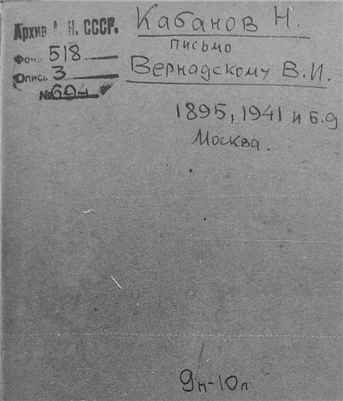 Архив А. Н. СССР.
Фонд 518
Опись 3
№ 694
Кабанов Н.
письмо
Вернадскому В.И.
1895, 1941 и б.д
Москва.
9п-10л